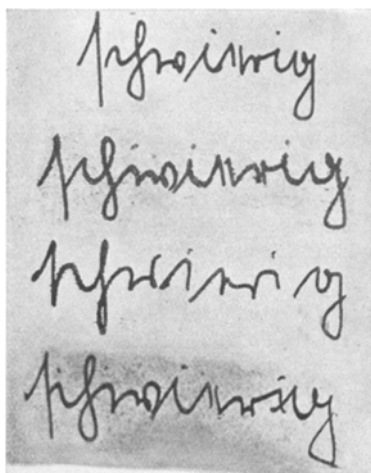 schwierig
schwierig
schwierig
schwierig